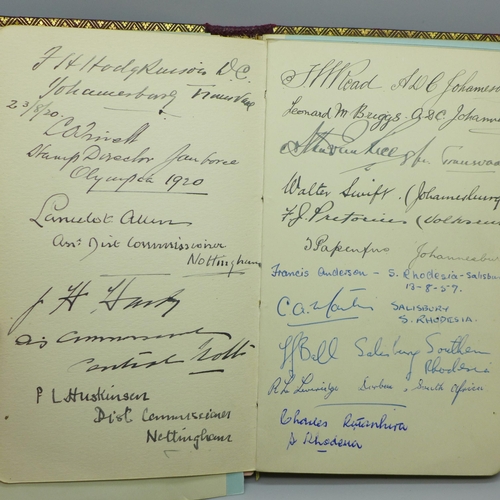 F H Hodgkinson D.C.
Johannesburg Transvaal
23/8/20
Stamp Director Jamboree
Olympia 1920
Lancelot Allen
Ass. Dist Commissioner
Nottingham
J H
Dis Commissioner
Central Notts
P L Huskinson
Dist. Commissioner
Nottingham
Read A D C Johannesb
Leonard M Briggs. A.D.C Johann
Walter Swift. (Johannesburg
F. J. Pretorius (Volksrus
J Papenfus Johannesbu
Francis Anderson - S. Rhodesia - Salisbur
13-8-57.
C.A. Martin SALISBURY
S. RHODESIA.
Bell Salisbury Southern
Rhodesia
Durban, South Africa
Charles Rutanhira
S Rhodesia